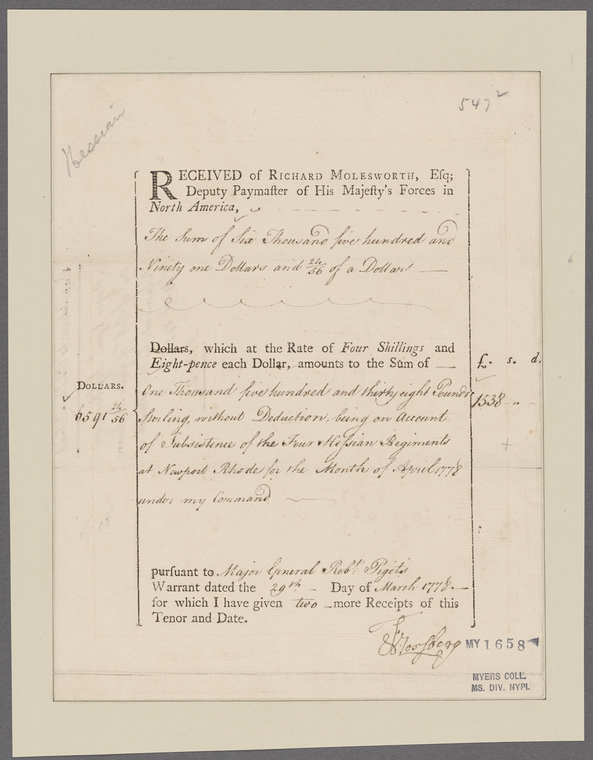 547 2
Hessian
RECEIVED of RICHARD MOLESWORTH, Eſq;
Deputy Paymaſter of His Majeſty's Forces in
North America,
The Sum of Six Thousand five hundred and
Ninety one Dollars and 24/56 of a Dollar
Dollars, which at the Rate of Four Shillings and
Eight-pence each Dollar, amounts to the Sum of
£. s. d.
DOLLARS.
One Thousand five hundred and thirty eight Pounds
1538 - „ -
6591 24/56
Sterling, without Deduction, being on Account
of Subsistence of the Four Hessian Regiments
at Newport Rhode for the Month of April 1778
under my Command
pursuant to Major General Robt. Pigot's
Warrant dated the 29th Day of March 1778
for which I have given two more Receipts of this
Tenor and Date.
MY 1658
MYERS COLL.
MS. DIV. NYPL